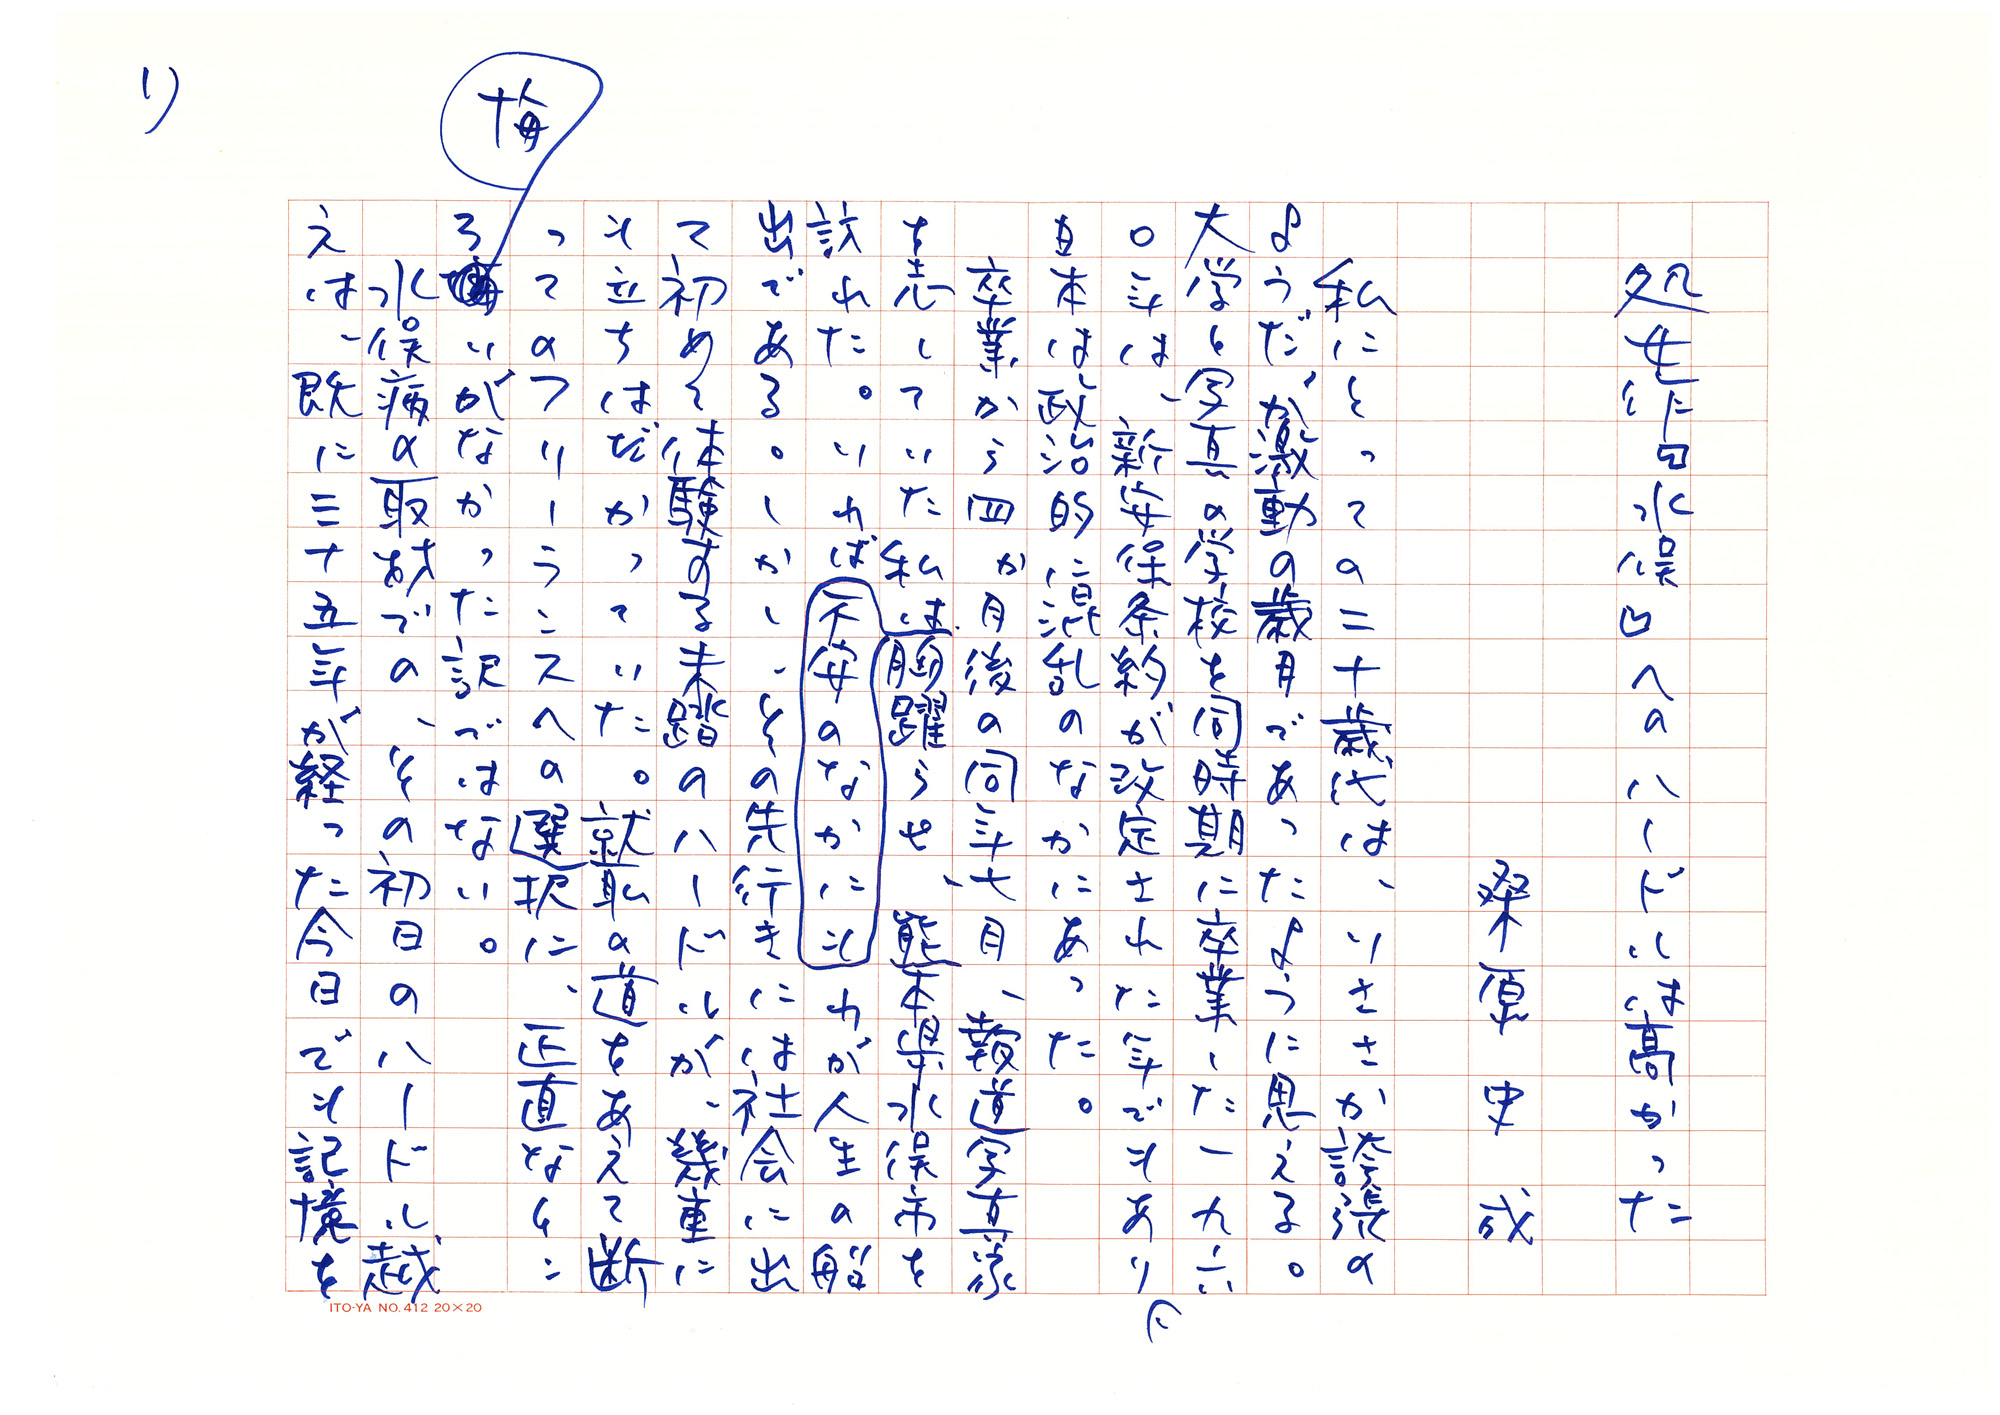 1)
悔
処女作『水俣』へのハードルは高かった
桑原史成
私にとっての二十歳代は、いささか誇張の
ようだが激動の歳月であったように思える。
大学と写真の学校を同時期に卒業した一九六
〇年は、新安保条約が改定された年でもあり
日本は政治的に混乱のなかにあった。
卒業から四か月後の同年七月、報道写真家
を志していた私は胸躍らせ、熊本県水俣市を
訪れた。いわば不安のなかにもわが人生の船
出である。しかし、その先行きには社会に出
て初めて体験する未踏のハードルが、幾重に
も立ちはだかっていた。就職の道をあえて断
ってのフリーランスへの選択に、正直なとこ
ろ悔いがなかった訳ではない。
水俣病の取材での、その初日のハードル越
えは、既に三十五年が経った今日でも記憶を
ITO-YA NO.412 20×20